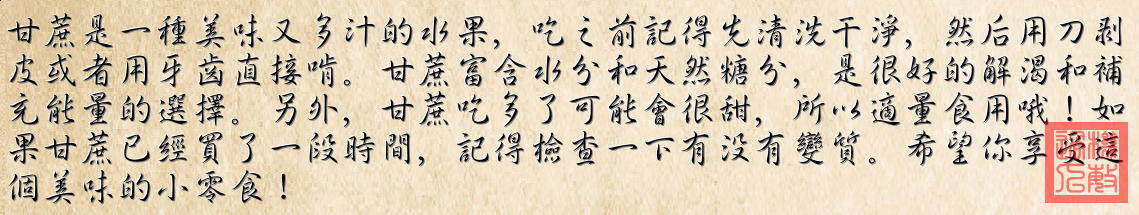 甘蔗是一種美味又多汁的水果，吃之前記得先清洗干淨，然后用刀剥
皮或者用牙齒直接啃。甘蔗富含水分和天然糖分，是很好的解渴和補
充能量的選擇。另外，甘蔗吃多了可能會很甜，所以適量食用哦！如
果甘蔗已經買了一段時間，記得檢查一下有没有變質。希望你享受這
個美味的小零食！